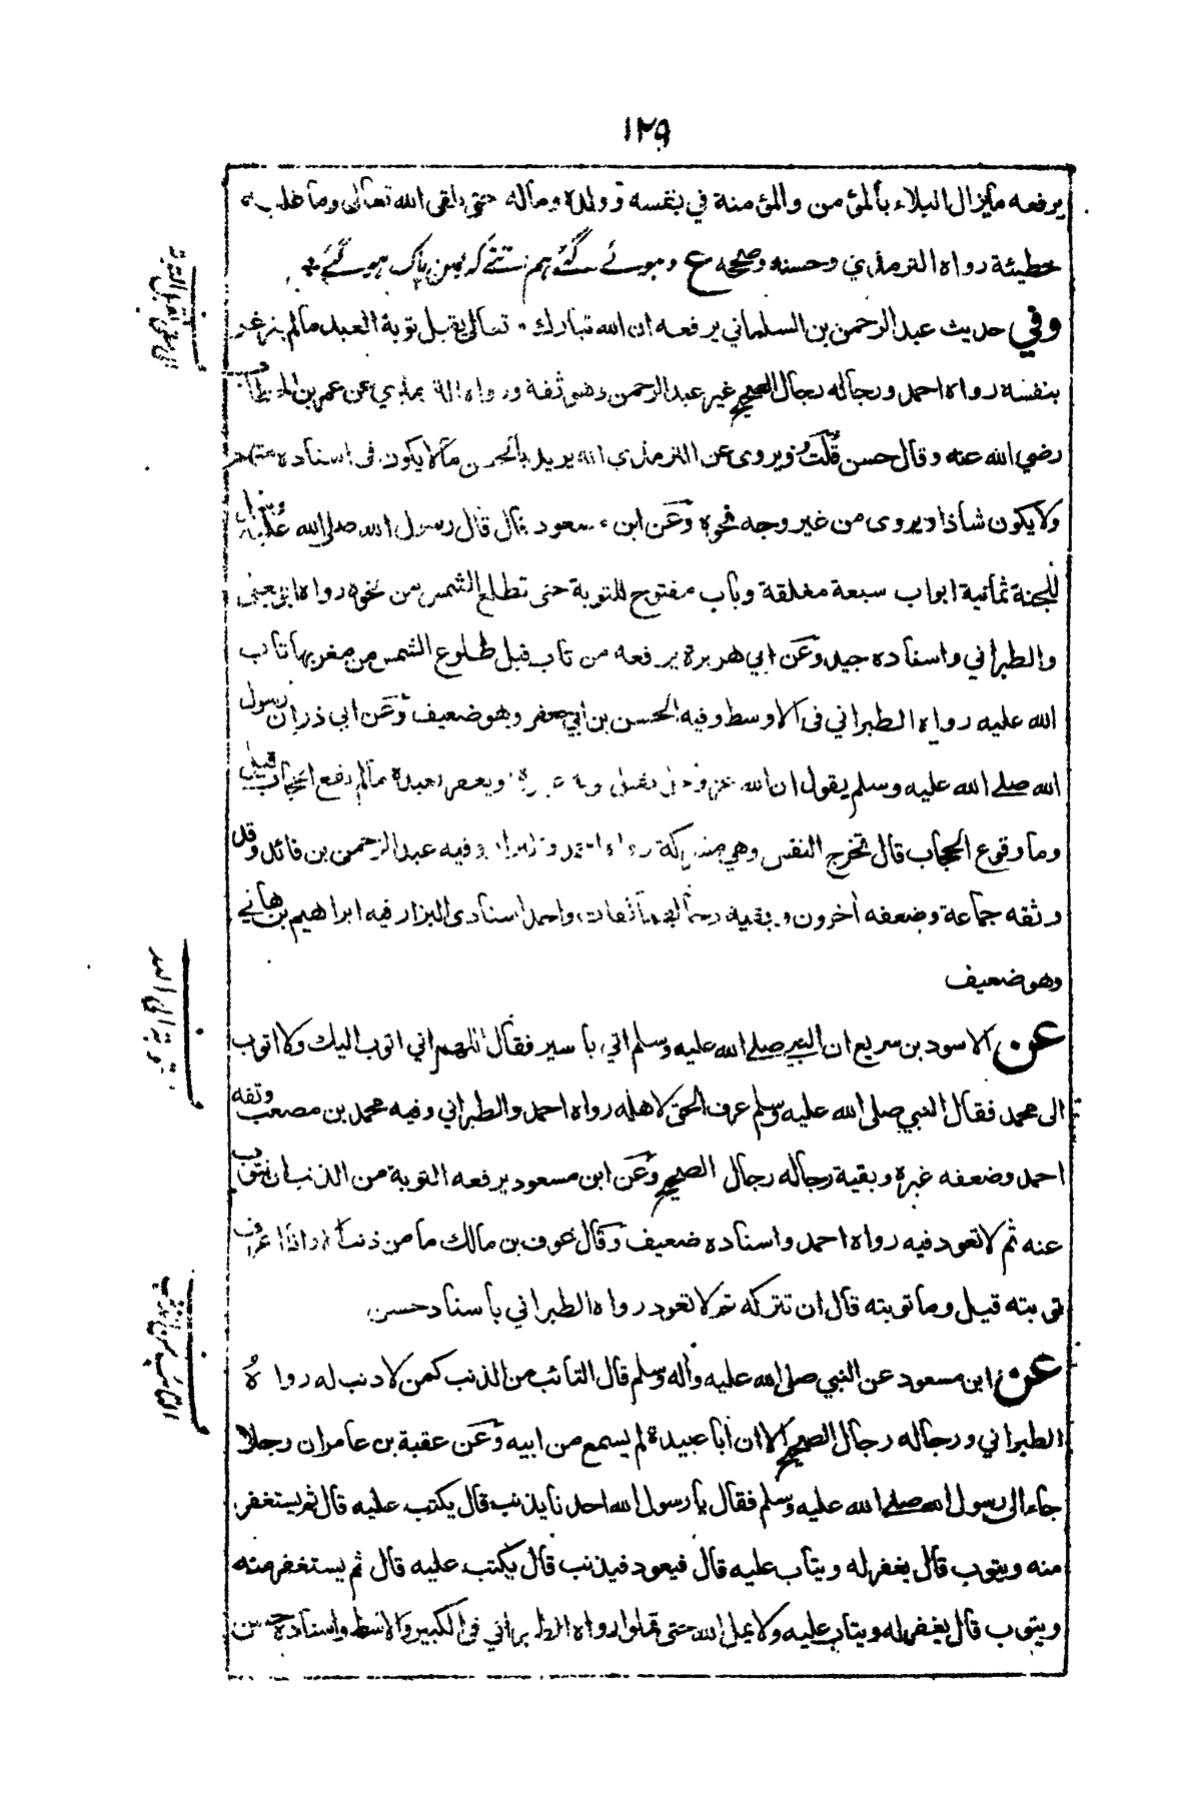 ١٢٩
يرفعه مايزال البلاء بالمؤمن والمؤمنة في نفسه وولده وماله حتى يلقى الله تعالى وما عليه
خطيئة رواه الترمذي وحسنه وصححه ع وہوئے گئے ہم ستنے کہ بس پاک ہوگئے
وفي حديث عبد الرحمن بن السلماني يرفعه ان الله تبارك تعالى يقبل توبة العبد مالم يغرغر
بنفسه رواه احمد ورجاله رجال الصحيح غير عبد الرحمن وهو ثقة ورواه عن عمر بن الخطاب
رضي الله عنه وقال حسن قلت ويروى عن الترمذي انه يريد بالحسن مالا يكون فى اسناده متهم
ولا يكون شاذا ويروى من غير وجه نحوه وعن ابن مسعود قال قال رسول الله صلى الله عليه وسلم
للجنة ثمانية ابواب سبعة مغلقة وباب مفتوح للتوبة حتى تطلع الشمس من نحوه رواه ابو يعلى
والطبراني واسناده جيد وعن ابي هريرة يرفعه من تاب قبل طلوع الشمس من مغربها تاب
الله عليه رواه الطبراني فى الاوسط وفيه الحسن بن ابي جعفر وهو ضعيف وعن ابى ذر ان رسول
الله صلے الله عليه وسلم يقول ان الله عز وجل يقبل توبة عبده ويغفر لعبده مالم يقع الحجاب قيل
وما وقوع الحجاب قال تخرج النفس وهي مشركة رواه احمد والبزار وفيه عبد الرحمن بن قائل وقد
وثقه جماعة وضعفه اخرون وبقية رجالهما ثقات واحد اسنادى البزار فيه ابراهيم بن هاني
وهو ضعيف
عن الاسود بن سريع ان النبي صلے الله عليه وسلم اتي باسير فقال اللهم اني اتوب اليك ولا اتوب
الى محمد فقال النبي صلى الله عليه وسلم عرف الحق لاهله رواه احمد والطبراني وفيه محمد بن مصعب وثقه
احمد وضعفه غيره وبقية رجاله رجال الصحيح وعن ابن مسعود يرفعه التوبة من الذنب ان يتوب
عنه ثم لا تعود فيه رواه احمد واسناده ضعيف وقال عوف بن مالك ما من ذنب الا وانا اعرف
توبته قيل وما توبته قال ان تتركه ثم لا تعود رواه الطبراني باسناد حسن
عن ابن مسعود عن النبي صلى الله عليه واله وسلم قال التائب من الذنب كمن لا ذنب له رواه
الطبراني ورجاله رجال الصحيح الا ان ابا عبيدة لم يسمع من ابيه وعن عقبة بن عامر ان رجلا
جاء الى رسول الله صلے الله عليه وسلم فقال يا رسول الله احدنا يذنب قال يكتب عليه قال ثم يستغفر
منه ويتوب قال يغفر له ويتاب عليه قال فيعود فيذنب قال يكتب عليه قال ثم يستغفر منه
ويتوب قال يغفر له ويتاب عليه ولا يمل الله حتى تملوا رواه الطبراني فى الكبير والاوسط واسناده حسن
توبة الى الله